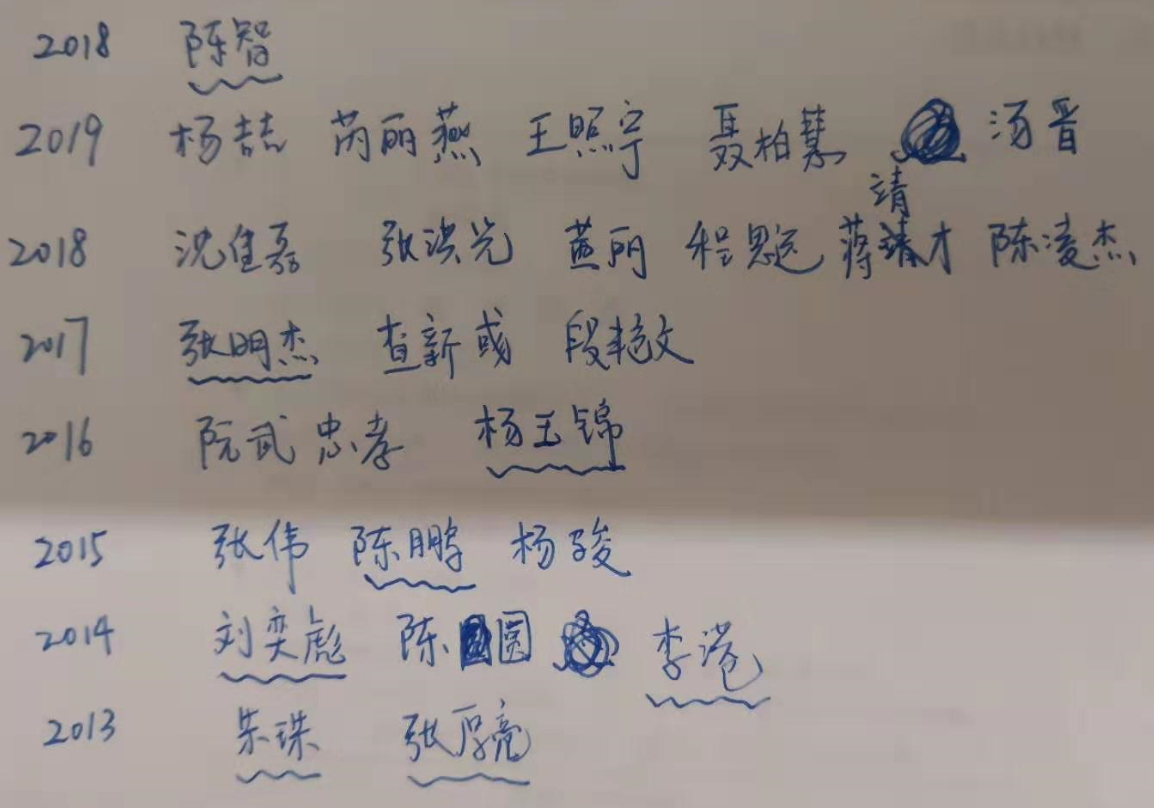 2018 陈智
2019 杨喆 芮丽燕 王照宁 聂柏慧 汤晋
2018 沈佳磊 张洪光 黄丽 程思远 蒋靖才 陈凌杰
2017 张明杰 查新彧 段艳文
2016 阮武忠孝 杨玉锦
2015 张伟 陈鹏 杨骏
2014 刘奕彪 陈圆 李港
2013 朱珠 张厚亮